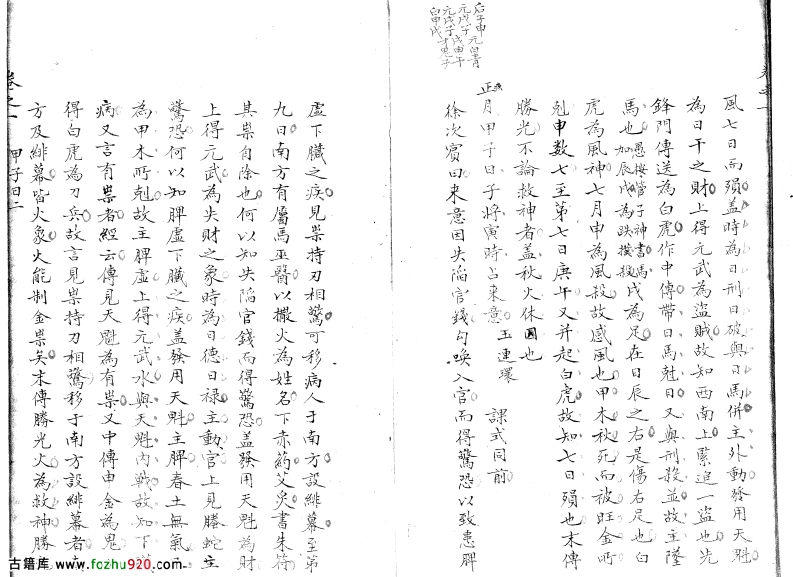 風七日而殞蓋時為日刑日破與日馬併主外動發用天魁
為日干之財上得元武為盜賊故知西南上緊追一盜也先
鋒門傳送為白虎作中傳帶日馬尅日又與刑殺並故主墜
馬也愚按當子神書馬如辰戌為跌撲殺戌為足在日辰之右是傷右足也白
虎為風神七月申為風殺故感風也甲木秋死而被旺金所
剋申数七至第七日庚午又并起白虎故知七日殞也末傳
勝光不論救神者蓋秋火休囚也
正月甲子日子將寅時占來意 王連環 課式同前
徐次賓曰來意因失陷官錢勾喚入官而得驚恐以致患脾
卷之一 甲子日二
虛下臟之疾見祟持刀相驚可移病人于南方設緋幕至第
九日南方有屬馬巫醫以撒火為姓名下赤药艾灸書朱符
其祟自除也何以知失陷官錢而得驚恐蓋發用天魁為財
上得元武為失財之象時為日德日祿主動官上見螣蛇主
驚恐何以知脾虛下臟之疾蓋發用天魁主脾春土無氣
為甲木所剋故主脾虛上得元武水與天魁內戰故知下
病又言有祟者經云傳見天魁為有祟又中傳申金為鬼
得白虎為刀兵故言見祟持刀相驚移于南方設緋幕者
方及緋幕皆火象火能制金祟矣末傳勝光火為救神勝
古籍库 www.fozhu920.com